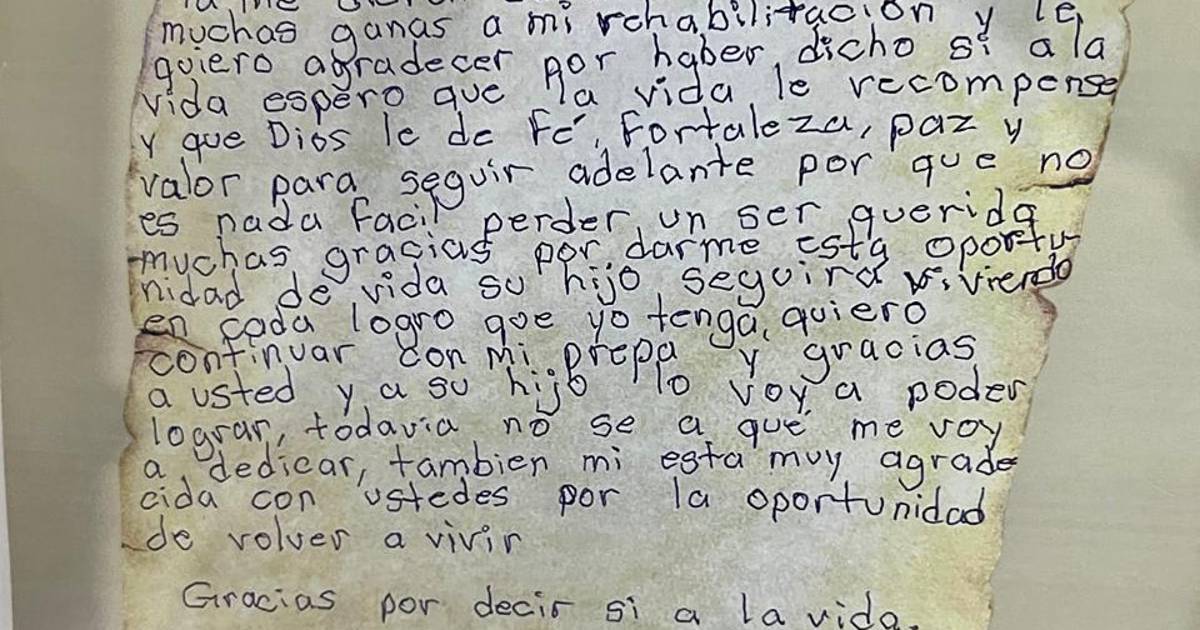 muchas ganas a mi rehabilitación y le
quiero agradecer por haber dicho si a la
vida espero que la vida le recompense
y que Dios le de Fé, Fortaleza, paz y
valor para seguir adelante por que no
es nada Facil perder un ser querido
muchas gracias por darme esta oportu-
nidad de vida su hijo seguira viviendo
en cada logro que yo tenga, quiero
continuar con mi prepa y gracias
a usted y a su hijo lo voy a poder
lograr, todavia no se a que me voy
a dedicar, tambien mi esta muy agrade
cida con ustedes por la oportunidad
de volver a vivir
Gracias por decir si a la vida.